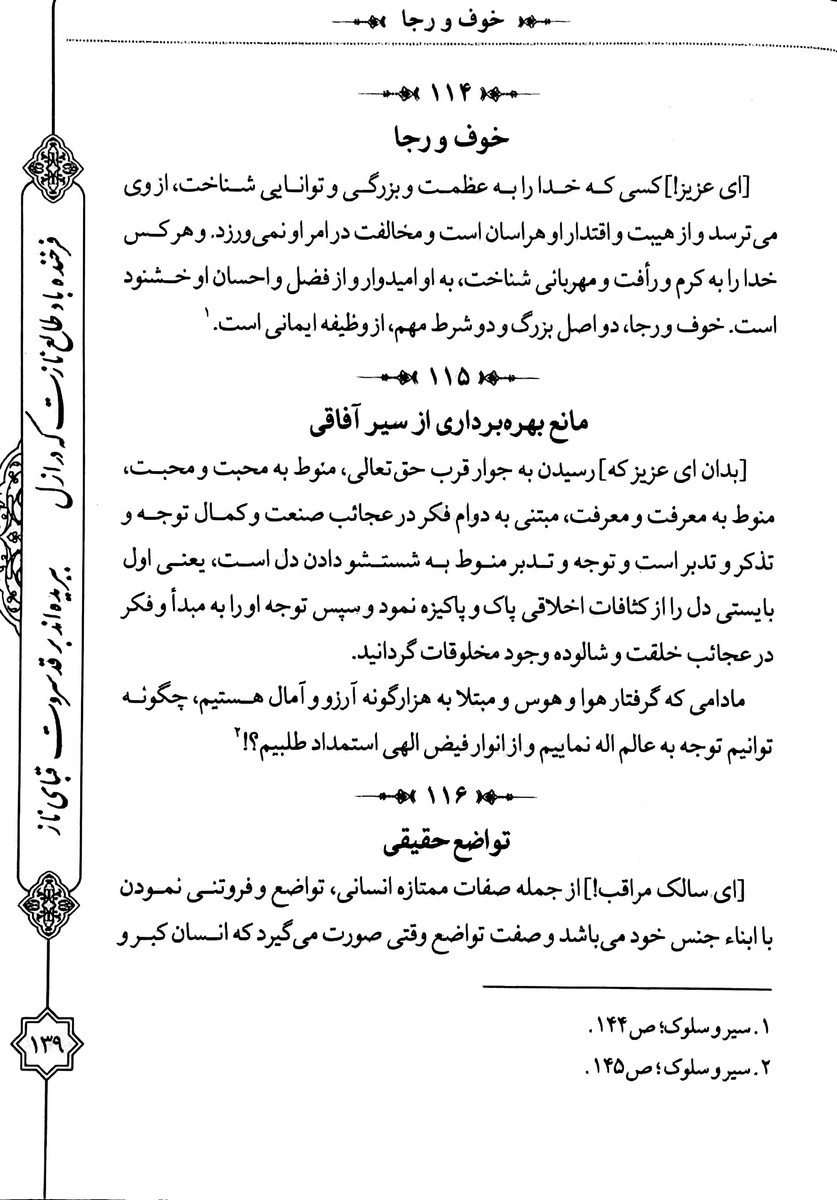 خوف و رجا
۱۱۴
خوف و رجا
[ای عزیز!] کسی که خدا را به عظمت و بزرگی و توانایی شناخت، از وی
می‌ترسد و از هیبت و اقتدار او هراسان است و مخالفت در امر او نمی‌ورزد. و هر کس
خدا را به کرم و رأفت و مهربانی شناخت، به او امیدوار و از فضل و احسان او خشنود
است. خوف و رجا، دو اصل بزرگ و دو شرط مهم، از وظیفه ایمانی است.۱
۱۱۵
مانع بهره‌برداری از سیر آفاقی
[بدان ای عزیز که] رسیدن به جوار قرب حق‌تعالی، منوط به محبت و محبت،
منوط به معرفت و معرفت، مبتنی به دوام فکر در عجائب صنعت و کمال توجه و
تذکر و تدبر است و توجه و تدبر منوط به شستشو دادن دل است، یعنی اول
بایستی دل را از کثافات اخلاقی پاک و پاکیزه نمود و سپس توجه او را به مبدأ و فکر
در عجائب خلقت و شالوده وجود مخلوقات گردانید.
مادامی که گرفتار هوا و هوس و مبتلا به هزارگونه آرزو و آمال هستیم، چگونه
توانیم توجه به عالم اله نماییم و از انوار فیض الهی استمداد طلبیم؟!۲
۱۱۶
تواضع حقیقی
[ای سالک مراقب!] از جمله صفات ممتازه انسانی، تواضع و فروتنی نمودن
با ابناء جنس خود می‌باشد و صفت تواضع وقتی صورت می‌گیرد که انسان کبر و
۱. سیر و سلوک؛ ص۱۴۴.
۲. سیر و سلوک؛ ص۱۴۵.
فرخنده باد طالع نازت که در ازل
ببریده‌اند بر قد سروت قبای ناز
۱۳۹